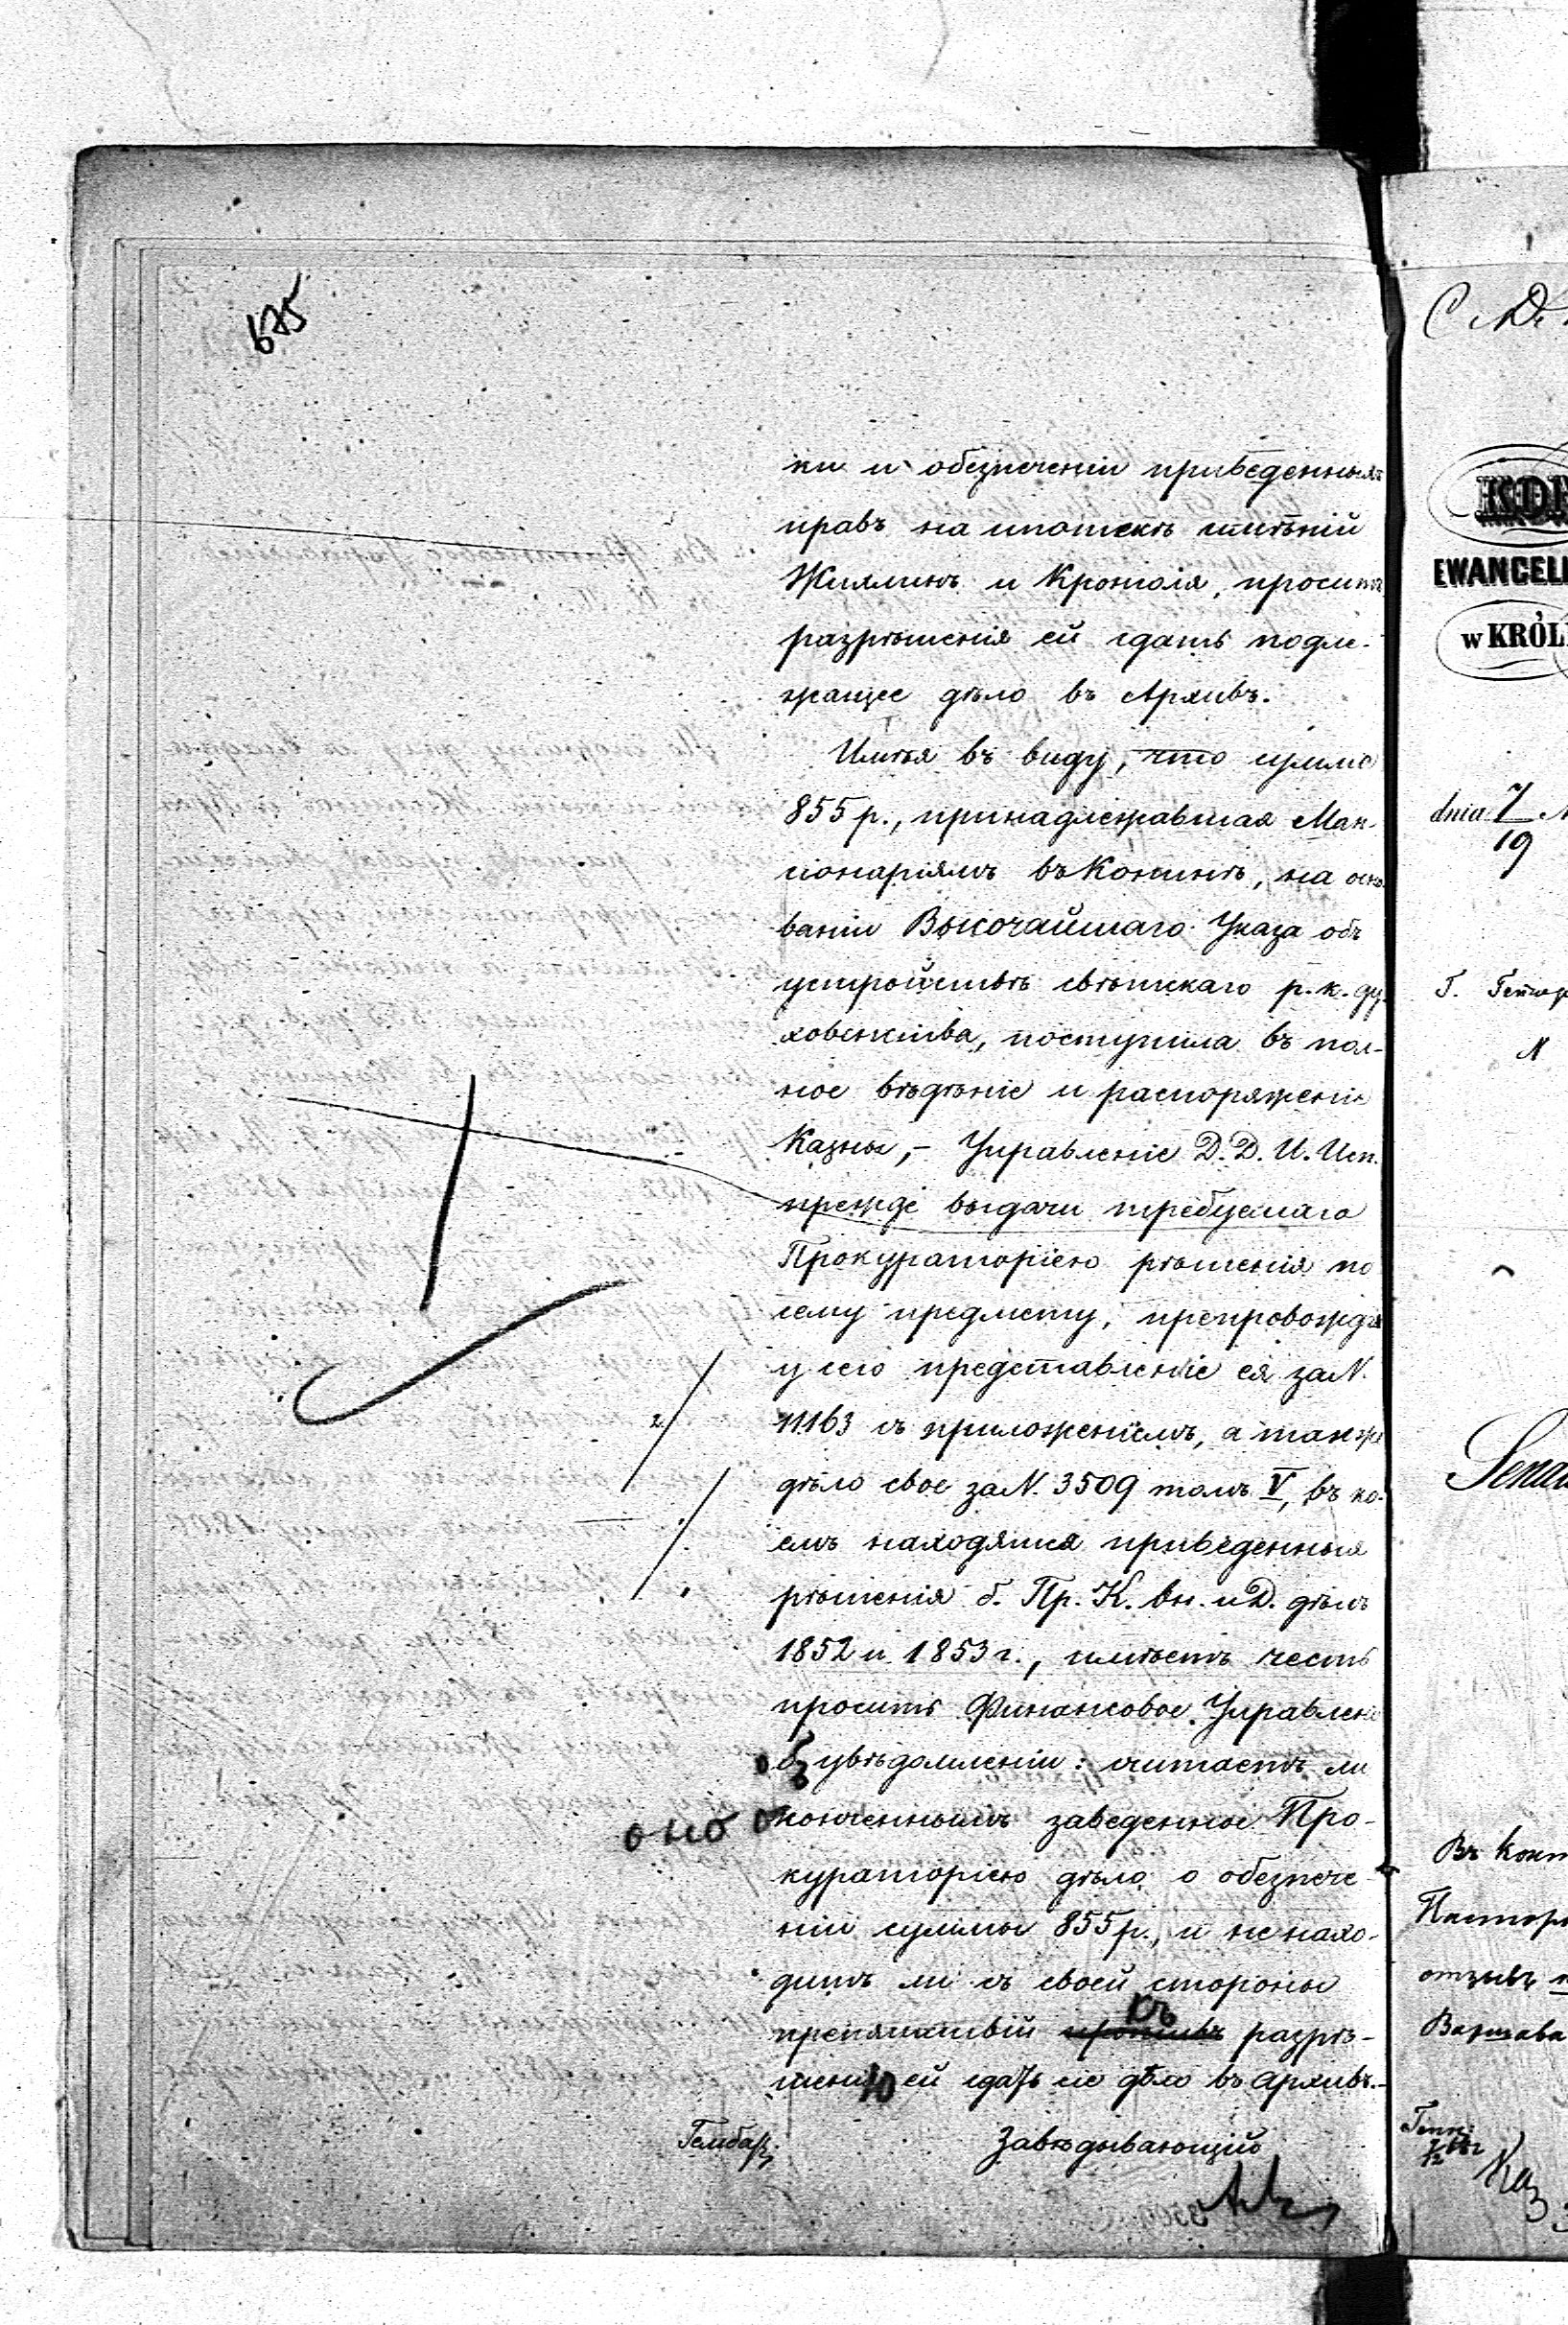 675
ки и обезпеченіи приведенныхъ
правъ на ипотекѣ имѣній
Жиллинъ и Кротоля, проситъ
разрѣшенія ей сдать подле-
жащее дѣло въ Архивъ.
Имѣя въ виду, что сумма
855 р., принадлежавшая Ман-
сіонаріямъ въ Конинѣ, на осно
ваніи Высочайшаго Указа объ
устройствѣ свѣтскаго р. к. ду-
ховенства, поступила въ пол-
ное вѣдѣніе и распоряженіе
Казны, – Управленіе Д. Д. И. Исп.
прежде выдачи требуемаго
Прокураторіею рѣшенія по
сему предмету, препровождая
у сего представленіе ея за N.
11163 съ приложеніемъ, а также
дѣло свое за N. 3509 томъ V, въ ко-
емъ находятся приведенныя
рѣшенія б. Пр. К. вн. и Д. дѣлъ
1852 и 1853 г., имѣетъ честь
просить Финансовое Управленіе
объ увѣдомленіи: считаетъ ли
оно оконченнымъ заведенное Про-
кураторіею дѣло о обезпече-
ніи суммы 855 р., и не нахо-
дитъ ли съ своей стороны
препятствій противъ къ разрѣ-
шенію ей сдать сіе дѣло въ архивъ.–
Гембар.
Завѣдывающій
EWANCELI
w KRÓL
dnia 7/19
Г.
N
Въ Конт
Пастор
отзывъ
Варшава